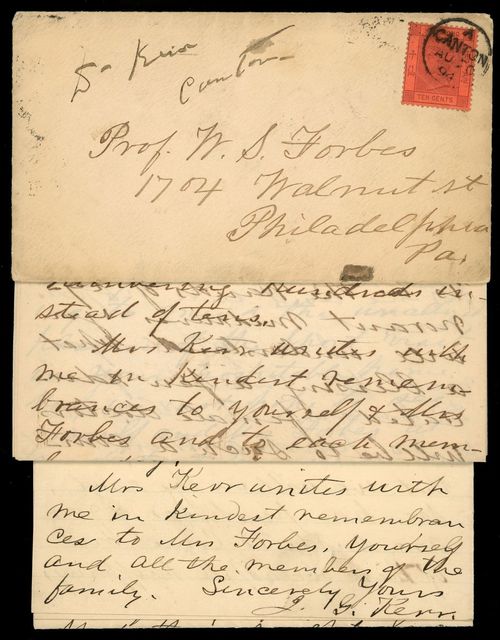 Dr Kerr
Canton
A
CANTON
AU
94
TEN CENTS
Prof. W. S. Forbes
1704 Walnut st
Philadelphia
Pa.
numbering hundreds in-
stead of tens.
Mrs Kerr unites with
me in kindest remem-
brances to yourself & Mrs
Forbes and to each mem-
Mrs Kerr unites with
me in kindest remembran
ces to Mrs Forbes, yourself
and all the members of the
family. Sincerely Yours
J. G. Kerr.